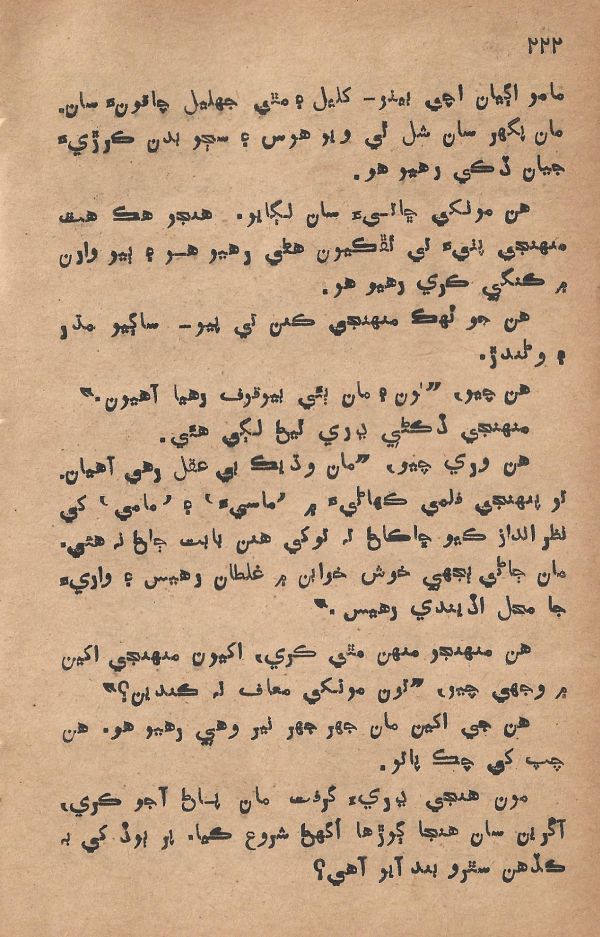 ۲۲۲
مامو اڳيان اچي بيٺو - کليل ۽ مٿي جهليل چاقوءَ سان.
مان پگهر سان شل ٿي ويو هوس ۽ سڄو بدن ڪرڙيءَ
جيان ڏڪي رهيو هو.
هن مونکي ڇاتيءَ سان لڳايو. هنجو هڪ هٿ
منهنجي پٺيءَ تي ٺڦڪيون هڻي رهيو هو ۽ ٻيو وارن
۾ ڪنگي ڪري رهيو هو.
هن جو ٽهڪ منهنجي ڪنن تي پيو - ساڳيو مڌر
۽ وڻندڙ.
هن چيو، ”تون ۽ مان ٻئي بيوقوف رهيا آهيون.“
منهنجي ڏڪڻي ڍري ٿيڻ لڳي هئي.
هن وري چيو، ”مان وڌيڪ بي عقل رهي آهيان.
تو پنهنجي فلمي ڪهاڻيءَ ۾ ’ماسيءَ‘ ۽ ’مامي‘ کي
نظر انداز ڪيو ڇاڪاڻ ته توکي هنن بابت ڄاڻ نه هئي.
مان ڄاڻي ٻجهي خوش خوابن ۾ غلطان رهيس ۽ واريءَ
جا محل اڏيندي رهيس.“
هن منهنجو منهن مٿي ڪري، اکيون منهنجي اکين
۾ وجهي چيو، ”تون مونکي معاف نه ڪندين؟“
هن جي اکين مان جهر جهر نير وهي رهيو هو. هن
چپ کي چڪ پاتو.
مون هنجي ڍريءَ گرفت مان پاڻ آجو ڪري،
آڱرين سان هنجا ڳوڙها اگهڻ شروع ڪيا. پر ٻوڏ کي به
ڪڏهن سنٿرو بند آيو آهي؟